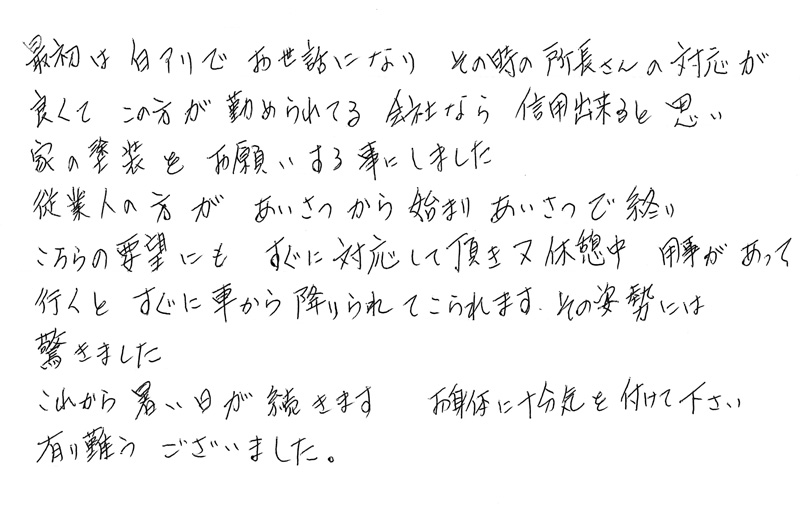 最初は白アリでお世話になり その時の所長さんの対応が
良くて この方が勤められてる会社なら 信用出来ると思い
家の塗装をお願いする事にしました
従業人の方が あいさつから始まり あいさつで終り
こちらの要望にも すぐに対応して頂き又休憩中 用事があって
行くと すぐに車から降りられてこられます. その姿勢には
驚きました
これから暑い日が続きます お身体に十分気を付けて下さい
有り難う ございました。